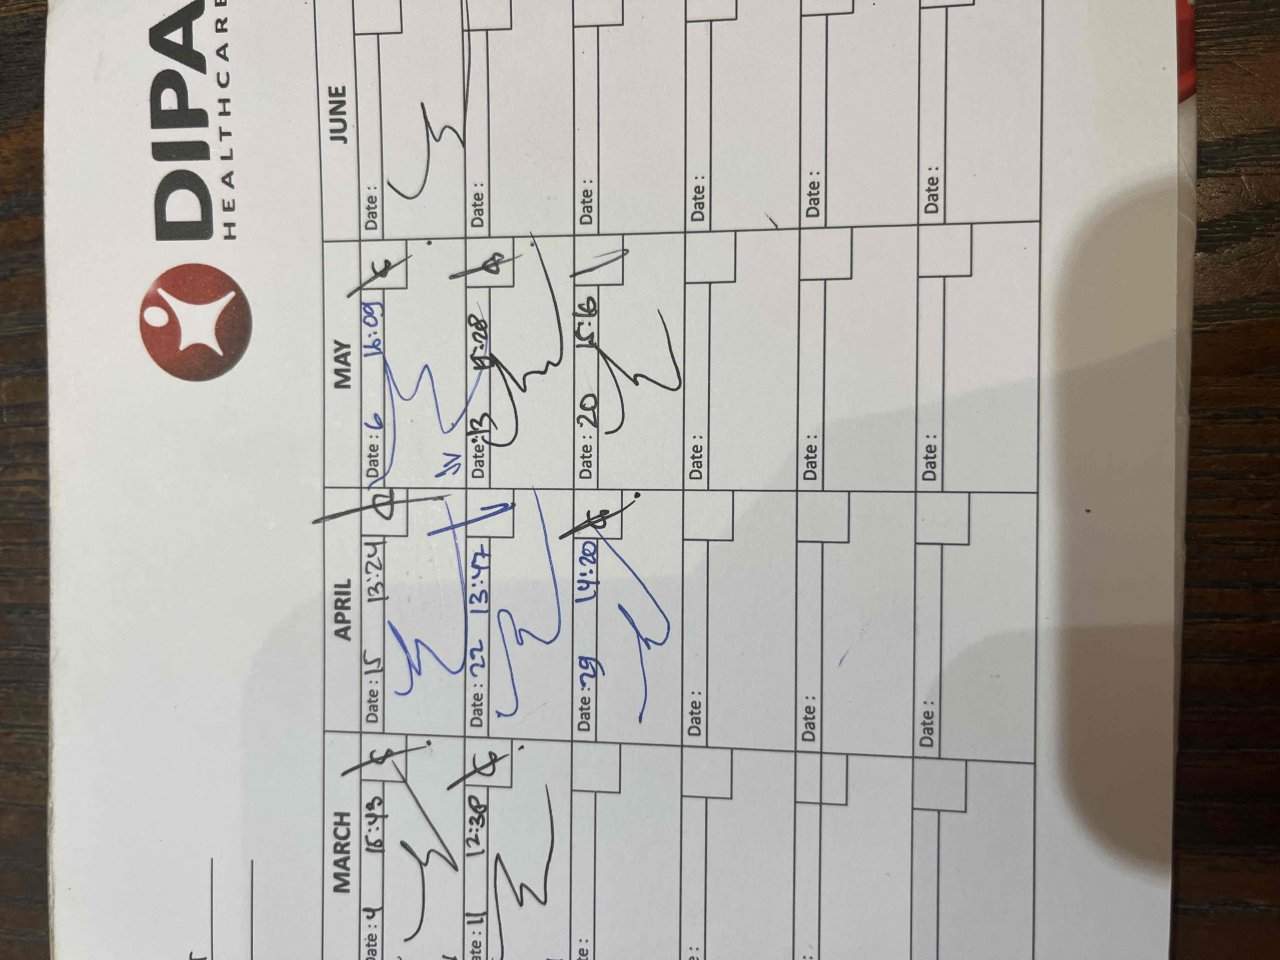 DIPA
HEALTHCARE
MARCH APRIL MAY JUNE
Date: 4 15:43 Date: 15 13:24 Date: 6 16:09 Date:
Date: 11 12:38 Date: 22 13:47 Date: 13 Date:
Date: 29 14:20 Date: 20 15:16 Date:
Date: Date: Date:
Date: Date: Date:
Date: Date: Date: